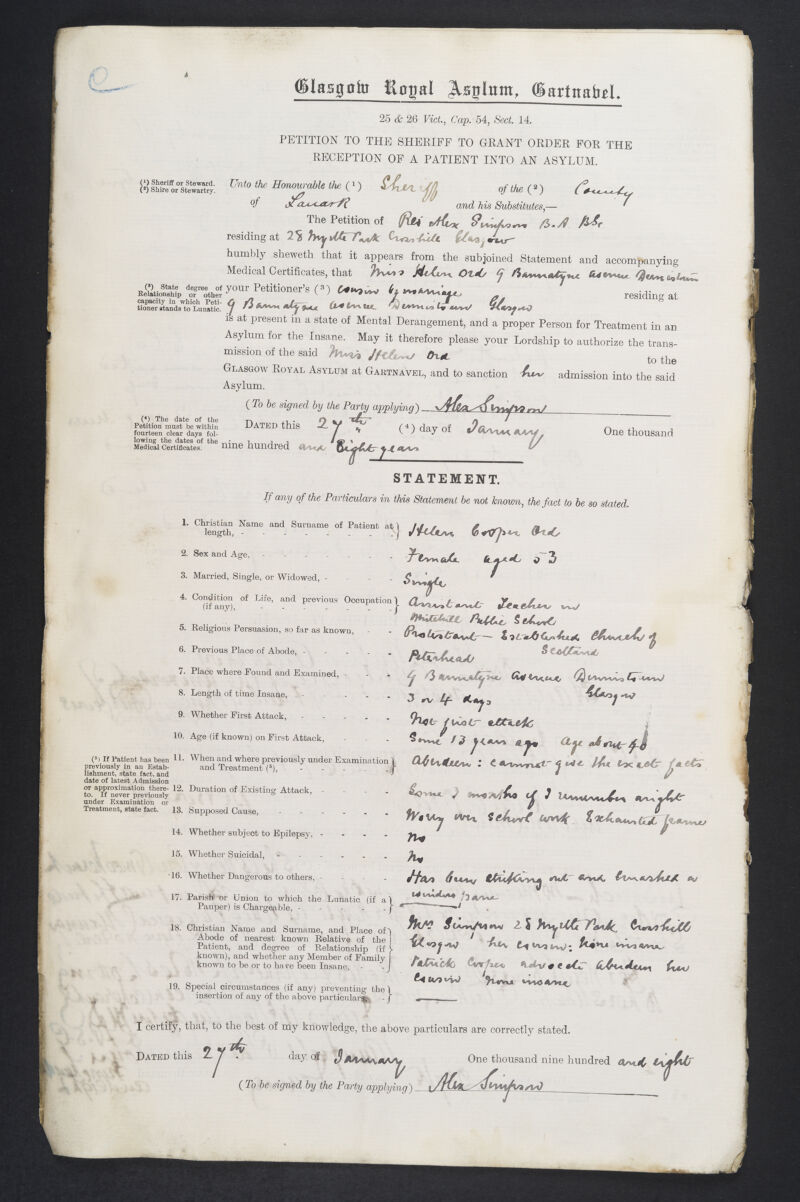 Glasgow Royal Asylum, Gartnabel.
25 & 26 Vict., Cap. 54, Sect. 14.
PETITION TO THE SHERIFF TO GRANT ORDER FOR THE
RECEPTION OF A PATIENT INTO AN ASYLUM.
(¹) Sheriff or Steward.
(²) Shire or Stewartry.
Unto the Honourable the (¹) Sheriff of the (²) County
of Lanark and his Substitutes,—
The Petition of Rev Alex Simpson B.A BSc
residing at 28 Myrtle Park Crosshill Glasgow
humbly sheweth that it appears from the subjoined Statement and accompanying
Medical Certificates, that Miss Helen Ord 9 Bannatyne Avenue Dennistoun
(³) State degree of
Relationship or other
capacity in which Peti-
tioner stands to Lunatic.
your Petitioner's (³) cousin by marriage residing at
9 Bannatyne Avenue Dennistoun Glasgow
is at present in a state of Mental Derangement, and a proper Person for Treatment in an
Asylum for the Insane. May it therefore please your Lordship to authorize the trans-
mission of the said Miss Helen Ord to the
GLASGOW ROYAL ASYLUM at GARTNAVEL, and to sanction her admission into the said
Asylum.
(To be signed by the Party applying) Alex Simpson
(⁴) The date of the
Petition must be within
fourteen clear days fol-
lowing the dates of the
Medical Certificates.
DATED this 27th (⁴) day of January One thousand
nine hundred and Eight years
STATEMENT.
If any of the Particulars in this Statement be not known, the fact to be so stated.
1. Christian Name and Surname of Patient at
length, - Helen Cooper Ord
2. Sex and Age, - Female aged 53
3. Married, Single, or Widowed, - Single
4. Condition of Life, and previous Occupation
(if any), - Assistant Teacher in
Public School
5. Religious Persuasion, so far as known, - Protestant — Established Church of
Scotland
6. Previous Place of Abode, - Peterhead
7. Place where Found and Examined, - 9 Bannatyne Avenue Dennistoun
Glasgow
8. Length of time Insane, - 3 or 4 days
9. Whether First Attack, - Not first attack
10. Age (if known) on First Attack, - Some 13 years ago Age about 40
(⁵) If Patient has been
previously in an Estab-
lishment, state fact, and
date of latest Admission
or approximation there-
to. If never previously
under Examination or
Treatment, state fact.
11. When and where previously under Examination
and Treatment (⁵), - Aberdeen: cannot give the exact facts
12. Duration of Existing Attack, - Some months if I remember aright
13. Supposed Cause, - Worry over school work Exhausted frame
14. Whether subject to Epilepsy, - No
15. Whether Suicidal, - No
16. Whether Dangerous to others, - Has been striking out and smashed a
window pane
17. Parish or Union to which the Lunatic (if a
Pauper) is Chargeable, -
18. Christian Name and Surname, and Place of
Abode of nearest known Relative of the
Patient, and degree of Relationship (if
known), and whether any Member of Family
known to be or to have been Insane, -
Mrs Simpson 28 Myrtle Park Crosshill
Glasgow her cousin: None insane
Patrick Cooper advocate Aberdeen her
cousin None insane
19. Special circumstances (if any) preventing the
insertion of any of the above particulars, - —
I certify, that, to the best of my knowledge, the above particulars are correctly stated.
DATED this 27th day of January One thousand nine hundred and eight
(To be signed by the Party applying) Alex Simpson